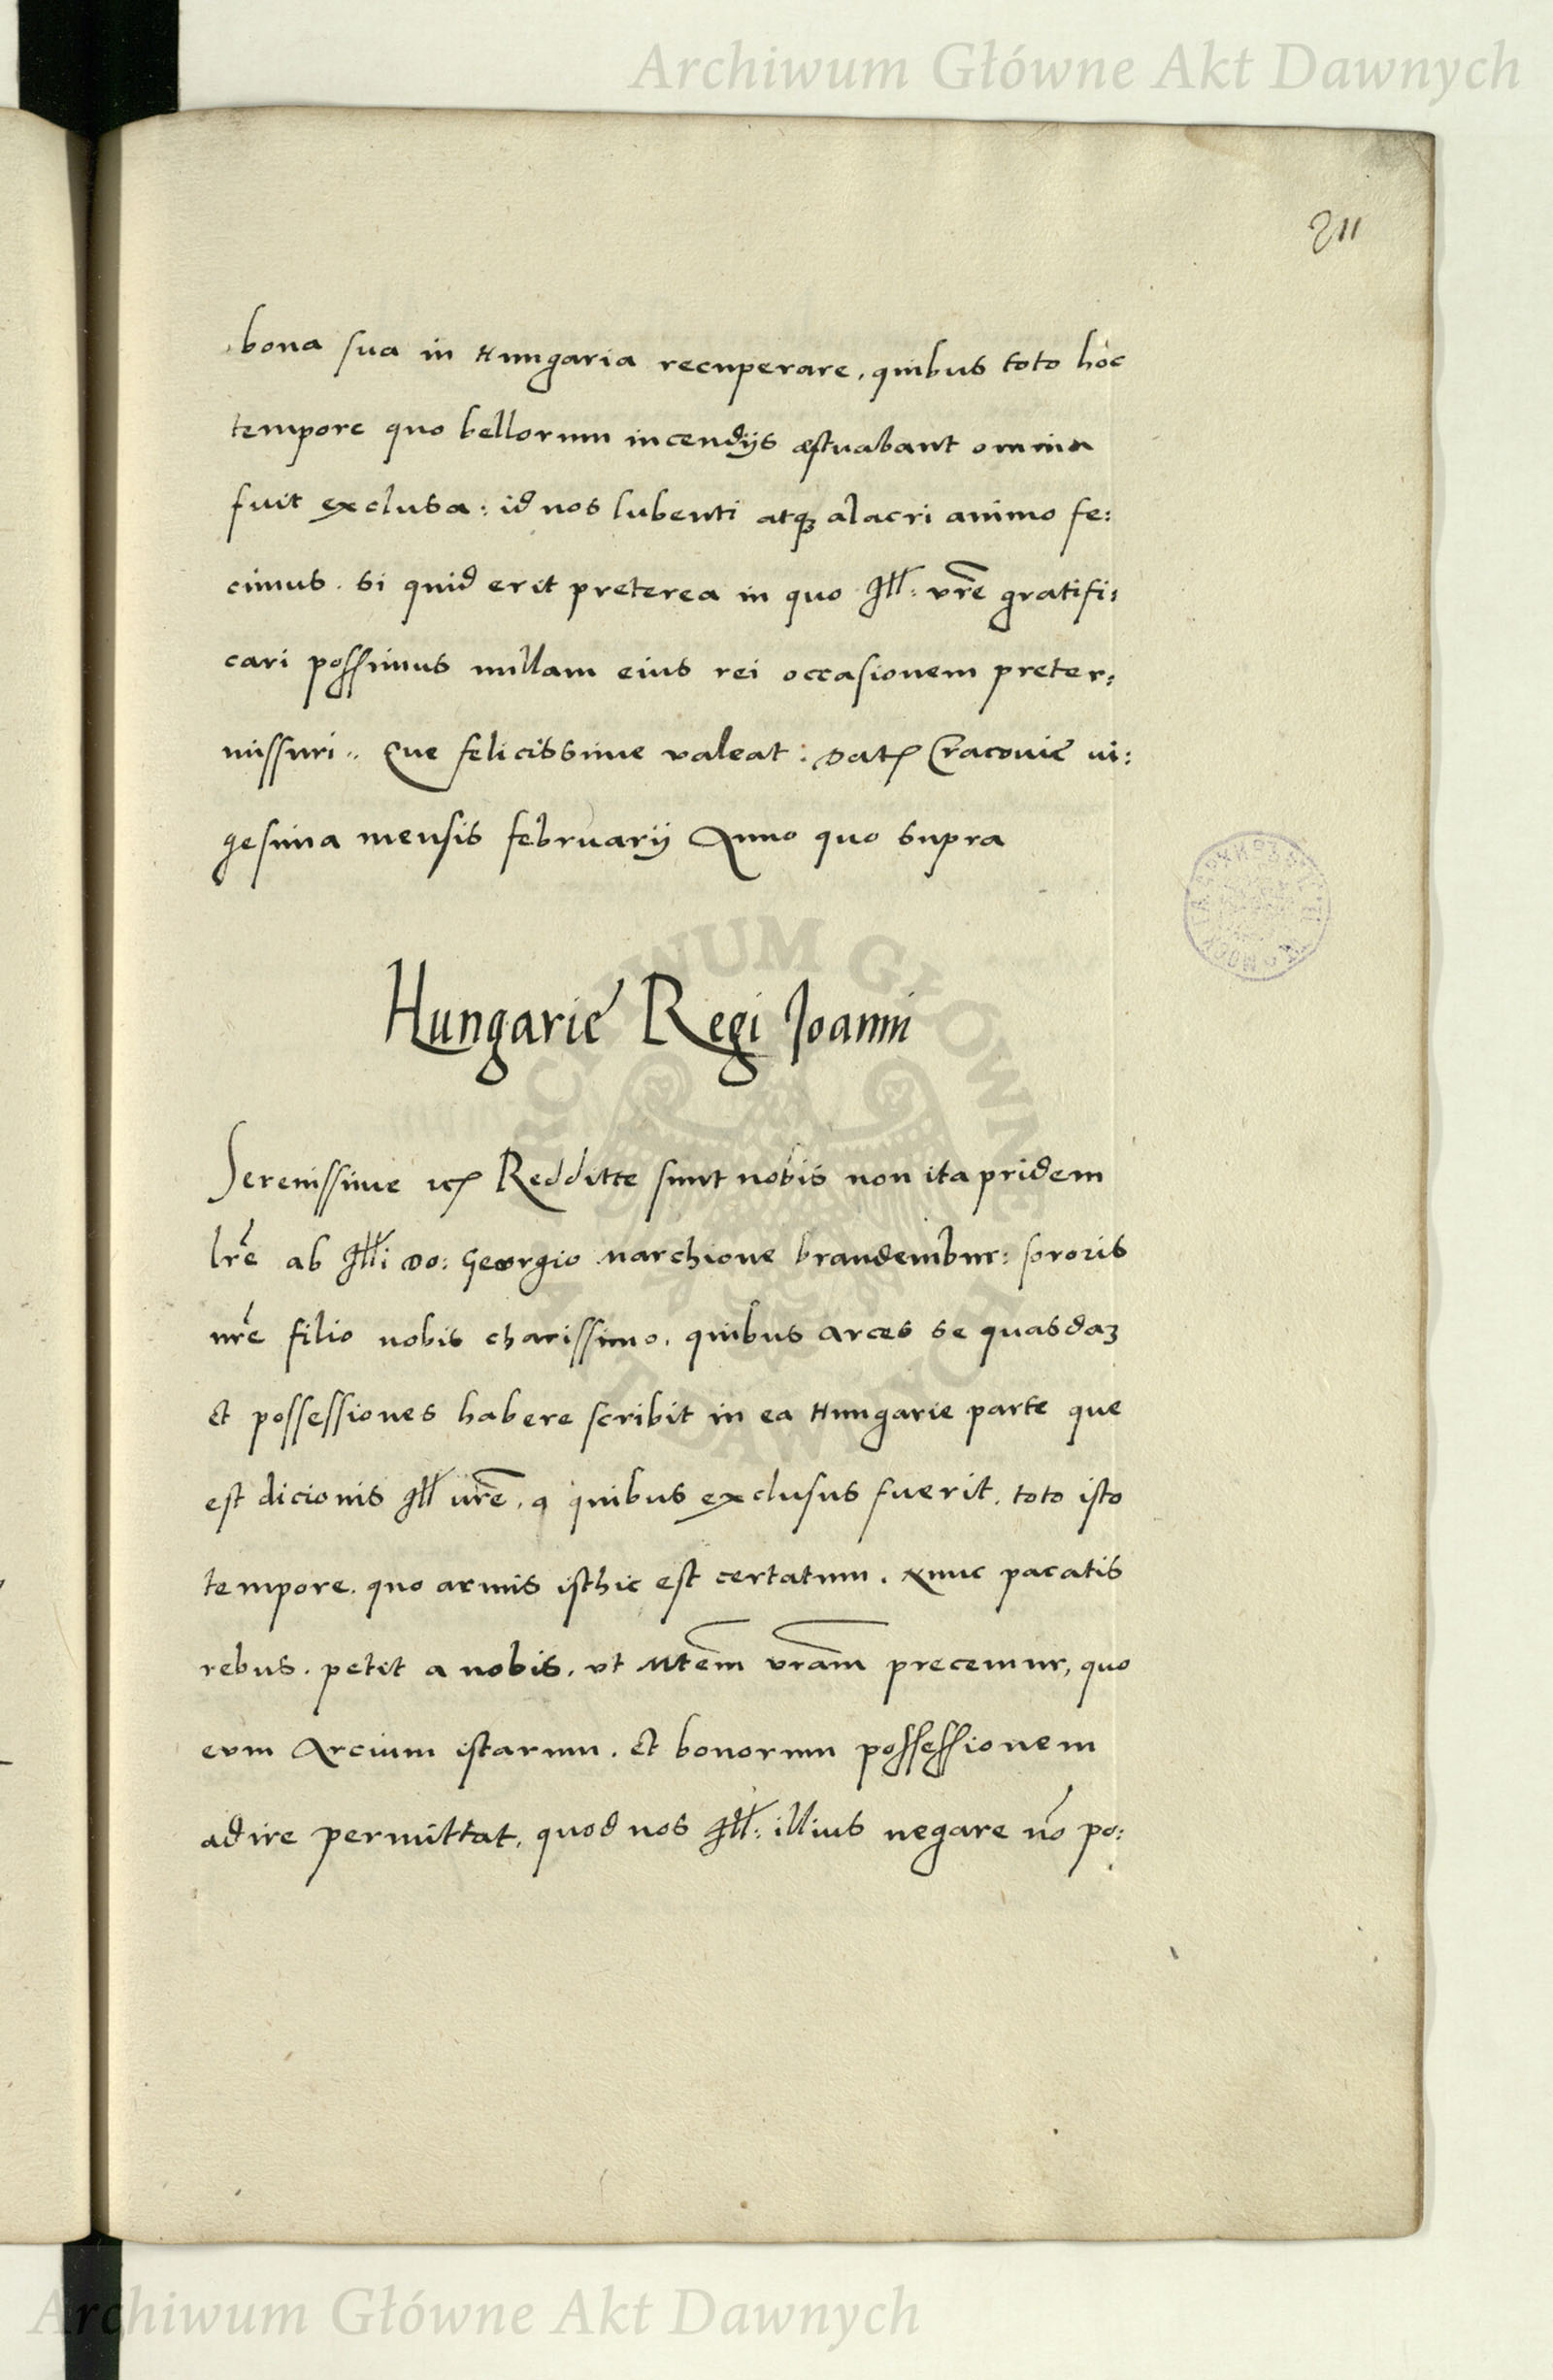 Archiwum Główne Akt Dawnych
211
bona sua in Hungaria recuperare, quibus toto hoc
tempore quo bellorum incendijs æstuabant omnia
fuit exclusa: id nos lubenti atqꝫ alacri animo fe:
cimus. Si quid erit preterea in quo Ill: vrē gratifi:
cari possimus nullam eius rei occasionem preter:
missuri. Que felicissime valeat: Dat. Cracovie vi:
gesima mensis februarij Anno quo supra
Hungarie Regi Joanni
Serenissime etc. Redditte sunt nobis non ita pridem
lrē ab Illi Do: Georgio Marchione brandenbur: sororis
nrē filio nobis charissimo. quibus arces se quasdaꝫ
et possessiones habere scribit in ea Hungarie parte que
est dicionis Ill vrē. a quibus exclusus fuerit. toto isto
tempore. quo armis isthic est certatum. Nunc pacatis
rebus. petit a nobis. vt Mtem vram precemur, quo
eum Arcium istarum. et bonorum possessionem
adire permittat, quod nos Ill: illius negare nō po:
ARCHIWUM GŁÓWNE AKT DAWNYCH
Archiwum Główne Akt Dawnych